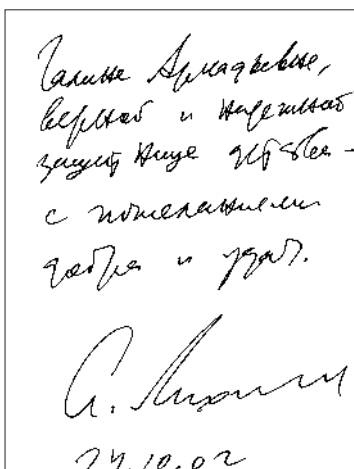 Галине Аркадьевне,
верной и надежной
защитнице детства -
с пожеланием
добра и удач.
А. Лиханов
24.10.02